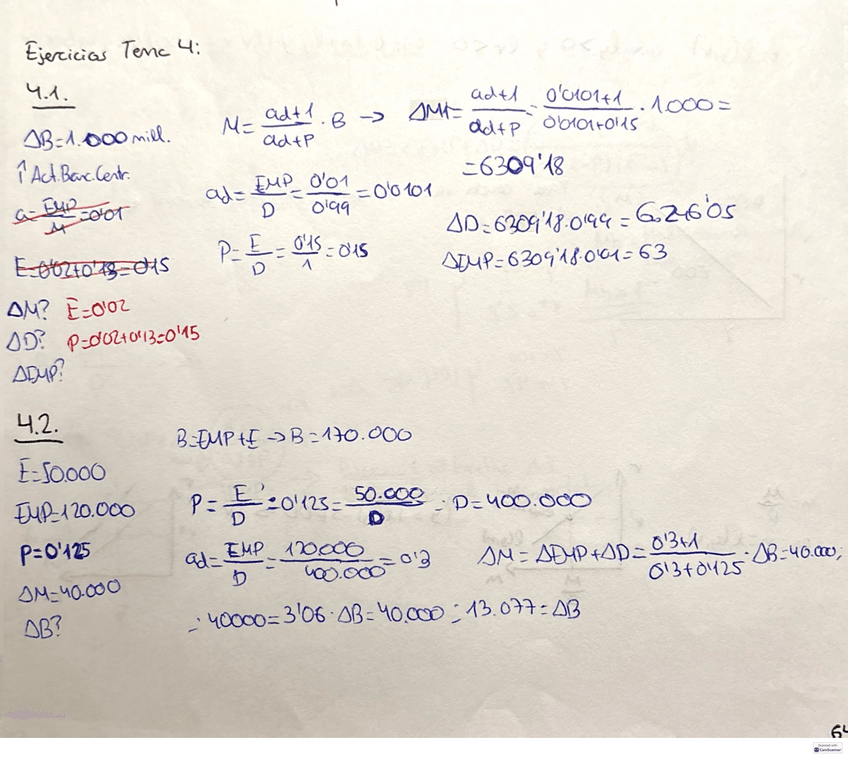 Ejercicios Tema 4:
4.1.
ΔB=1.000 mill.
↑Act.Banc.Centr.
a=EMP/M=0'01
E=0'02+0'13=0'15
ΔM? E=0'02
ΔD? P=0'02+0'13=0'15
ΔEMP?
M=ad+1/ad+P · B → ΔM=ad+1/ad+P=0'0101+1/0'0101+0'15 · 1.000=
=6309'18
ad=EMP/D=0'01/0'99=0'0101
P=E/D=0'15/1=0'15
ΔD=6309'18·0'99=6.246'05
ΔEMP=6309'18·0'01=63
4.2.
E=50.000
EMP=120.000
P=0'125
ΔM=40.000
ΔB?
B=EMP+E → B=170.000
P=E/D=0'125=50.000/D ∴ D=400.000
ad=EMP/D=120.000/400.000=0'3
ΔM=ΔEMP+ΔD=0'3+1/0'3+0'125 · ΔB=40.000;
∴ 40000=3'06·ΔB=40.000 ∴ 13.077=ΔB
64
Scanned with
CamScanner